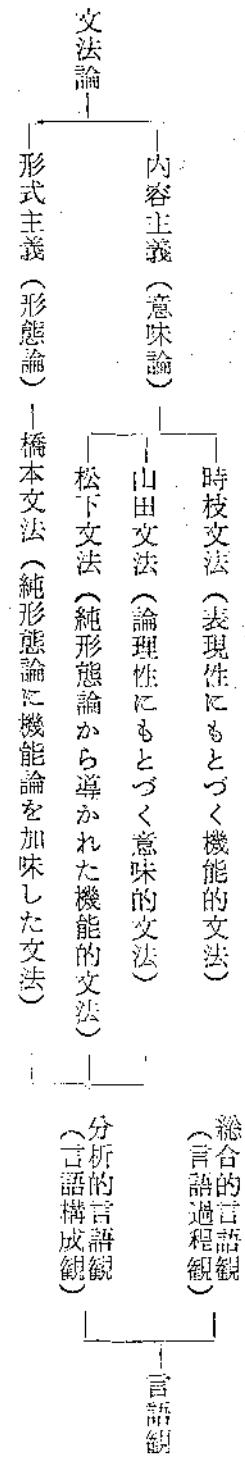 文法論
内容主義（意味論）
時枝文法（表現性にもとづく機能的文法）
山田文法（論理性にもとづく意味的文法）
松下文法（純形態論から導かれた機能的文法）
形式主義（形態論）
橋本文法（純形態論に機能論を加味した文法）
総合的言語観
（言語過程観）
分析的言語観
（言語構成観）
言語観